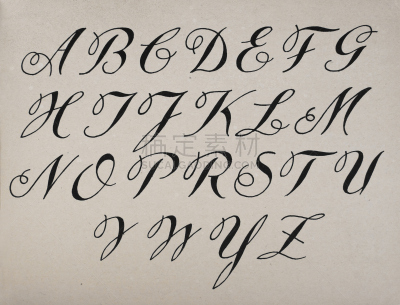 A B C D E F G
H I J K L M
N O P R S T U
V W Y Z
搞定素材